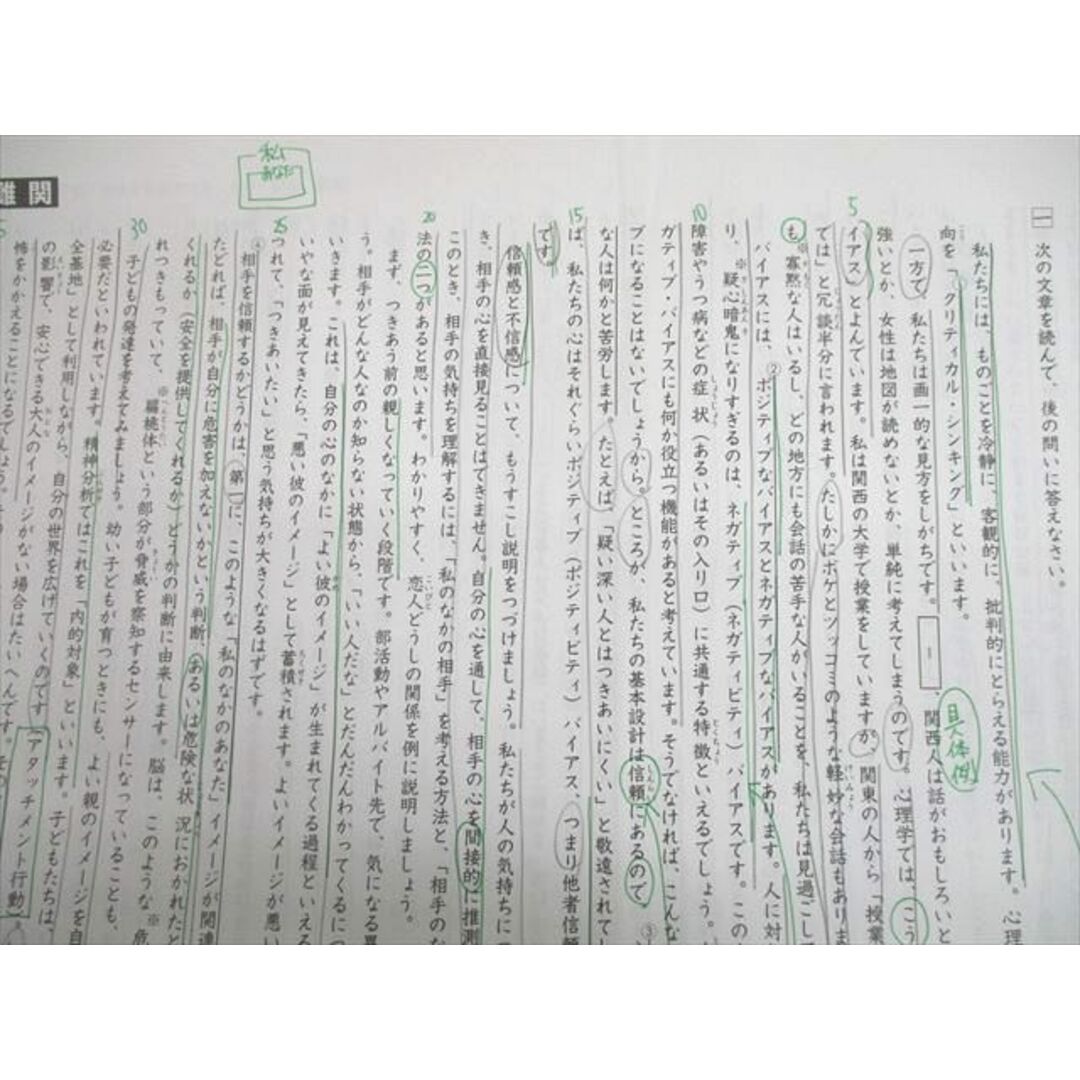 一 次の文章を読んで、後の問いに答えなさい。
私たちには、ものごとを冷静に、客観的に、批判的にとらえる能力があります。心理
向を「クリティカル・シンキング」といいます。
一方で、私たちは画一的な見方をしがちです。 1 、関西人は話がおもしろいと
強いとか、女性は地図が読めないとか、単純に考えてしまうのです。心理学では、こう
5
イアス」とよんでいます。私は関西の大学で授業をしていますが、関東の人から「授業
では」と冗談半分に言われます。たしかにボケとツッコミのような軽妙な会話もありま
も※寡黙な人はいるし、どの地方にも会話の苦手な人がいることを、私たちは見過ごして
バイアスには、②ポジティブなバイアスとネガティブなバイアスがあります。人に対
り、※疑心暗鬼になりすぎるのは、ネガティブ（ネガティビティ）バイアスです。この
10
障害やうつ病などの症状（あるいはその入り口）に共通する特徴といえるでしょう。
ガティブ・バイアスにも何か役立つ機能があると考えています。そうでなければ、こんな
ブになることはないでしょうから。ところが、私たちの基本設計は信頼にあるので③
な人は何かと苦労します。たとえば、「疑い深い人とはつきあいにくい」と敬遠されてし
15
ば、私たちの心はそれぐらいポジティブ（ポジティビティ）バイアス、つまり他者信頼
です。
信頼感と不信感について、もうすこし説明をつづけましょう。私たちが人の気持ちにつ
き、相手の心を直接見ることはできません。自分の心を通して、相手の心を間接的に推測
このとき、相手の気持ちを理解するには、「私のなかの相手」を考える方法と、「相手のな
20
法の二つがあると思います。わかりやすく、恋人どうしの関係を例に説明しましょう。
まず、つきあう前の親しくなっていく段階です。部活動やアルバイト先で、気になる異
う。相手がどんな人なのか知らない状態から、「いい人だな」とだんだんわかってくるにつ
いきます。これは、自分の心のなかに「よい彼のイメージ」が生まれてくる過程といえる
いやな面が見えてきたら、「悪い彼のイメージ」として蓄積されます。よいイメージが悪い
25
つれて、「つきあいたい」と思う気持ちが大きくなるはずです。
④相手を信頼するかどうかは、第一に、このような「私のなかのあなた」イメージが関連
たどれば、相手が自分に危害を加えないかという判断（あるいは危険な状況におかれたと
くれるか（安全を提供してくれるか）どうかの判断に由来します。脳は、このような※危
れつきもっていて、※扁桃体という部分が脅威を察知するセンサーになっていることも、
30
子どもの発達を考えてみましょう。幼い子どもが育つときにも、よい親のイメージを自
必要だといわれています。精神分析ではこれを「内的対象」といいます。子どもたちは、
全基地」として利用しながら、自分の世界を広げていくのです（アタッチメント行動）
の影響で、安心できる大人のイメージがない場合はたいへんです。その
怖をかかえることになるでしょう。
難関
私
あなた
具体例